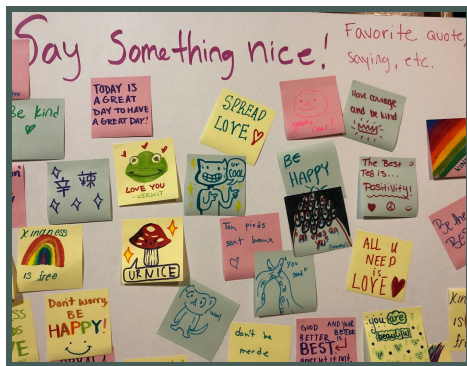 Say Something nice!
Favorite quote,
saying, etc.
Be kind
TODAY IS
A GREAT
DAY TO HAVE
A GREAT DAY!
SPREAD
LOVE
Have courage
and be kind
辛辣
LOVE YOU
-KERMIT
UR
COOL
BE
HAPPY
The Best
Tea is...
POSITIVITY!
Be the
BES
Kindness
is free
UR NICE
Ton pieds
sont beaux
ALL U
NEED
is
LOVE
Don't Worry,
BE
HAPPY!
"You
good"
don't be
merde
GOOD AND YOUR
BETTER IS
BEST
never let it rest
you are
beautiful